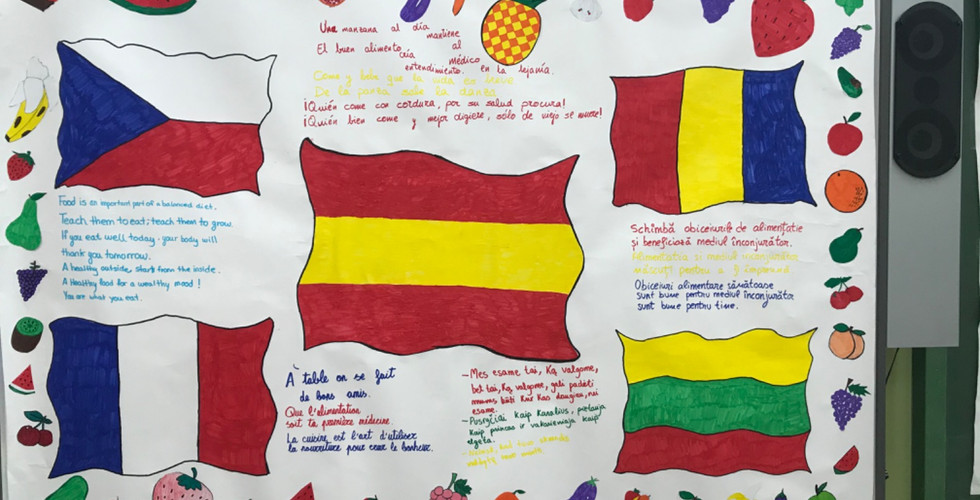 Una manzana al día mantiene
al médico
en la lejanía.
El buen alimento
cría
entendimiento.
Come y bebe que la vida es breve
De la panza, sale la danza
¡Quién come con cordura, por su salud procura!
¡Quién bien come y mejor digiere, sólo de viejo se muere!
Food is an important part of a balanced diet.
Teach them to eat; teach them to grow.
If you eat well today. your body will
thank you tomorrow.
A healthy outside, start from the inside.
A Healthy food for a wealthy mood!
You are what you eat.
Schimbă obiceiurile de alimentație
și beneficiază mediul înconjurător.
Alimentatia si mediul inconjurător
născuți pentru a fi împreună
Obiceiuri alimentare sănătoase
sunt bune pentru mediul înconjurător
sunt bune pentru tine.
À table on se fait
de bons amis.
Que l'alimentation
soit ta première médecine
La cuisine est l'art d'utiliser
la nourriture pour créer le bonheur.
- Mes esame tai, Ką valgome,
bet tai, Ką valgome, gali padėti
mums būti Kur Kas daugiau, nei
esame.
- Pusryčiai kaip Karalius, pietauja
Kaip princas ir vakarieniauja kaip
elgeta.